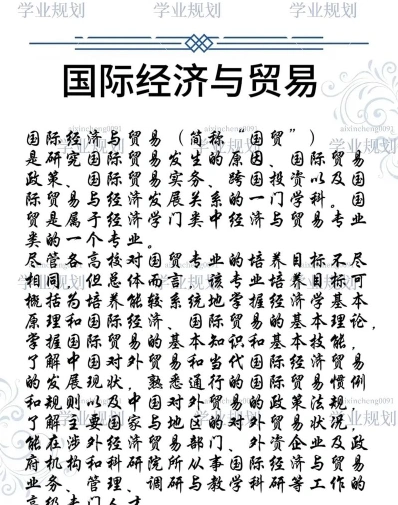 学业规划 学业规划 学业规划
国际经济与贸易
aixincheng0091 aixincheng0091 aixincheng0091
学业规划 学业规划 学业规划
国际经济与贸易（简称“国贸”）
是研究国际贸易发生的原因、国际贸易
政策、国际贸易实务、跨国投资以及国
际贸易与经济发展关系的一门学科。国
贸是属于经济学门类中经济与贸易专业
类的一个专业。
尽管各高校对国贸专业的培养目标不尽
相同，但总体而言，该专业培养目标可
概括为培养能较系统地掌握经济学基本
原理和国际经济、国际贸易的基本理论，
掌握国际贸易的基本知识和基本技能，
了解中国对外贸易和当代国际经济贸易
的发展现状，熟悉通行的国际贸易惯例
和规则以及中国对外贸易的政策法规，
了解主要国家与地区的对外贸易状况，
能在涉外经济贸易部门、外资企业及政
府机构和科研院所从事国际经济与贸易
业务、管理、调研与教学科研等工作的
高级专门人才